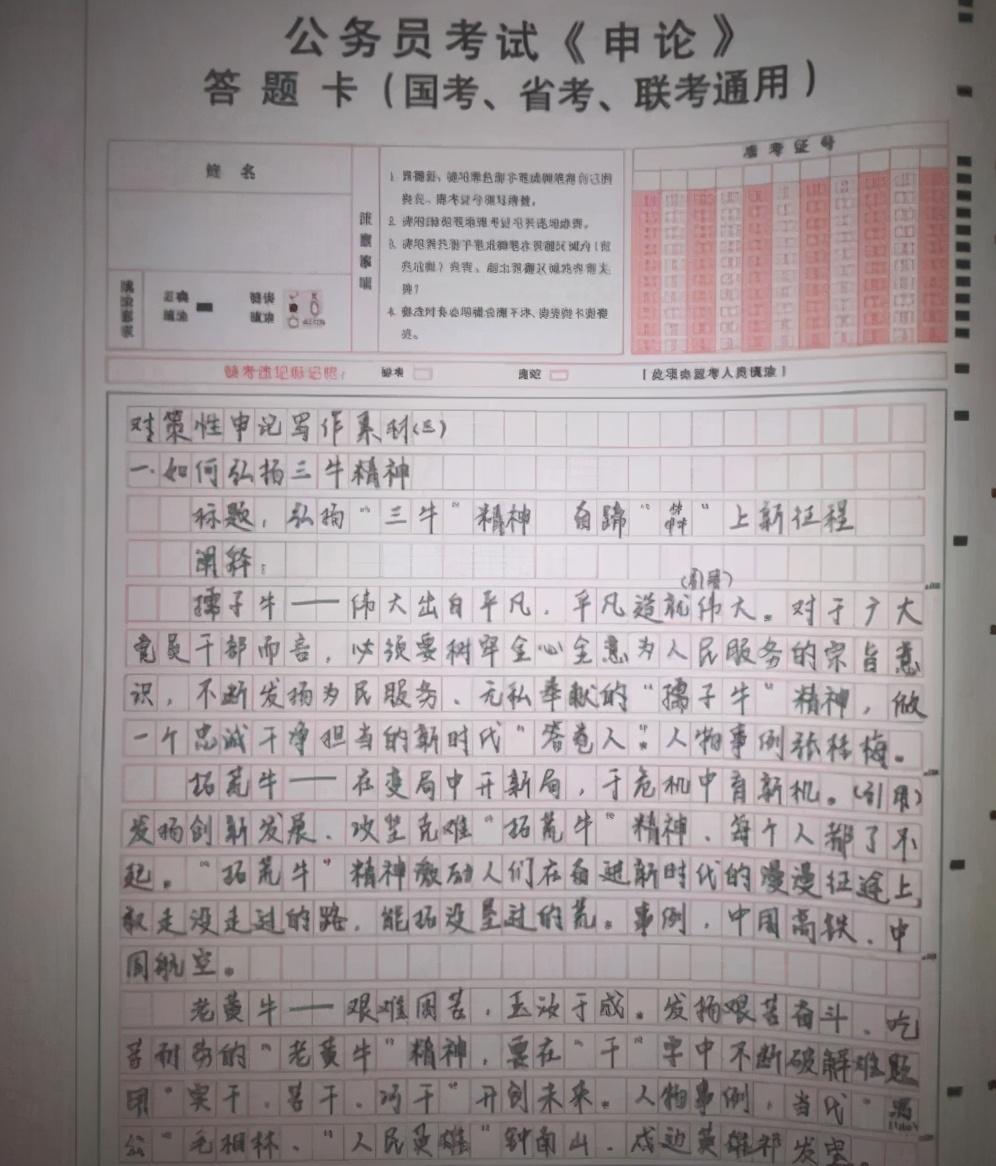 公务员考试《申论》
答题卡（国考、省考、联考通用）
姓 名
准考证号
注意事项
正确填涂
错误填涂
缺考
违纪
对策性申论写作素材(三)
一.如何弘扬三牛精神
标题，弘扬“三牛”精神 奋蹄“犇”上新征程
阐释：
(引用)
孺子牛——伟大出自平凡，平凡造就伟大。对于广大
党员干部而言，必须要树牢全心全意为人民服务的宗旨意
识，不断发扬为民服务、无私奉献的“孺子牛”精神，做
一个忠诚干净担当的新时代“答卷人”。人物事例张桂梅。
拓荒牛——在变局中开新局，于危机中育新机。(引用)
发扬创新发展、攻坚克难“拓荒牛”精神、每个人都了不
起。“拓荒牛”精神激励人们在奋进新时代的漫漫征途上，
敢走没走过的路，能拓没垦过的荒。事例，中国高铁、中
国航空。
老黄牛——艰难困苦，玉汝于成。发扬艰苦奋斗、吃
苦耐劳的“老黄牛”精神，要在“干”字中不断破解难题
用“实干、苦干、巧干”开创未来。人物事例，当代“愚
公”毛相林、“人民英雄”钟南山、戍边英雄祁发宝。